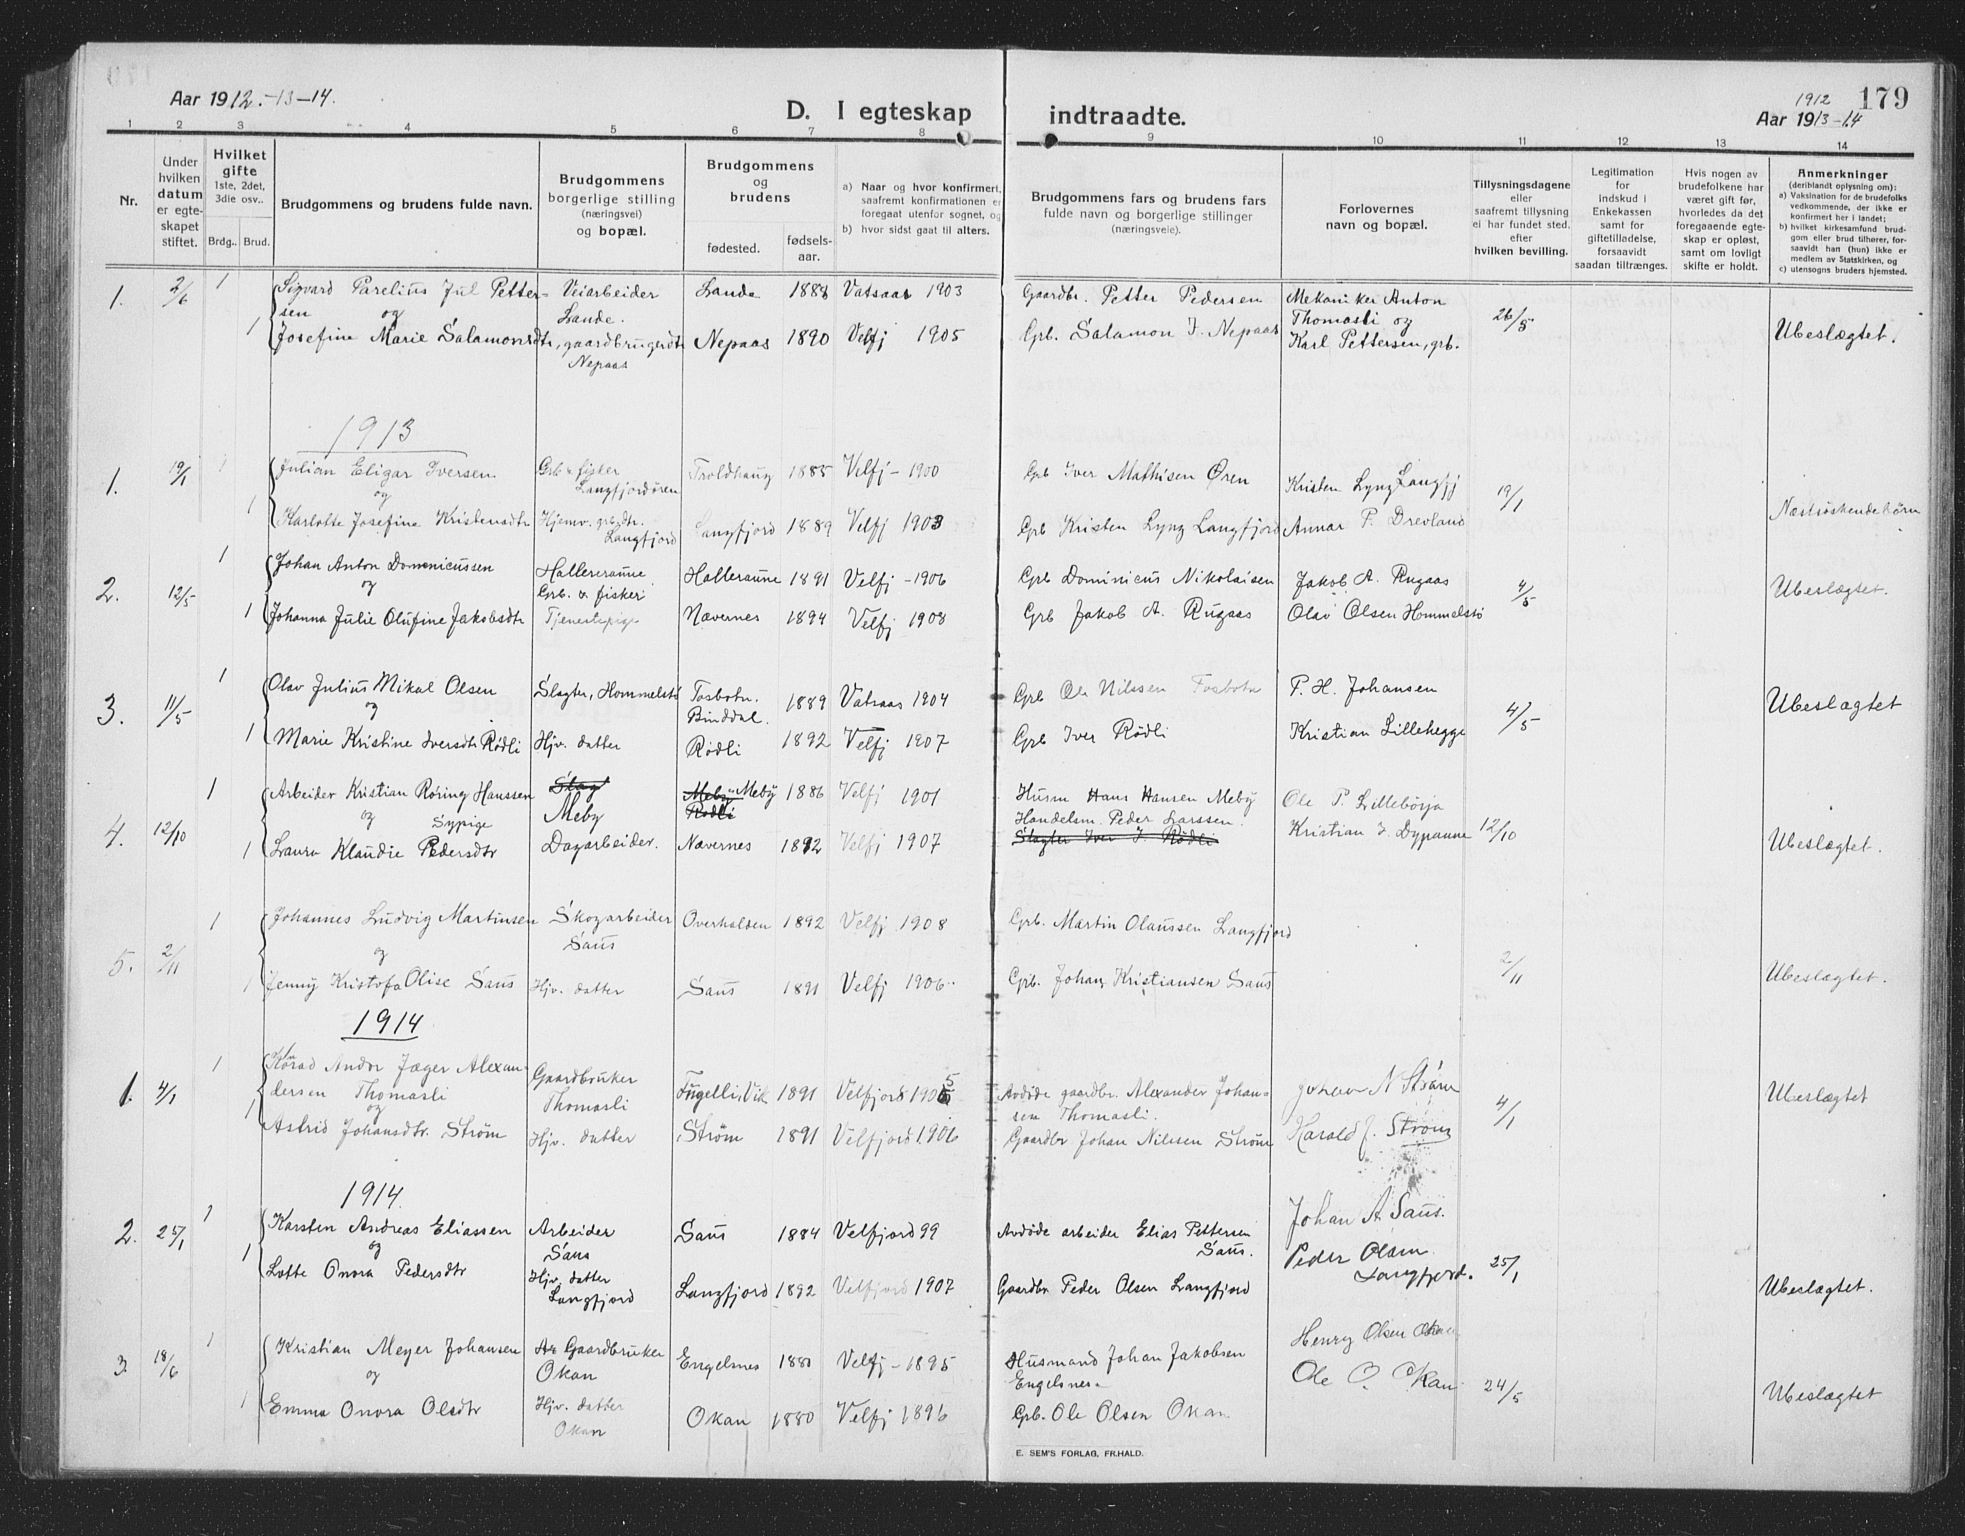 Aar 1912.-13-14.
D. I egteskap
indtraadte.
1912
Aar 1913-14
179
1 2 3 4 5 6 7 8 9 10 11 12 13 14
Nr.
Under hvilken datum er egteskapet stiftet.
Hvilket gifte
1ste, 2det, 3die osv..
Brdg.. Brud.
Brudgommens og brudens fulde navn.
Brudgommens borgerlige stilling (næringsvei) og bopæl.
Brudgommens og brudens
fødested. fødsels-aar.
a) Naar og hvor konfirmert, saafremt konfirmationen er foregaat utenfor sognet, og
b) hvor sidst gaat til alters.
Brudgommens fars og brudens fars fulde navn og borgerlige stillinger (næringsveie).
Forlovernes navn og bopæl.
Tillysningsdagene eller saafremt tillysning ei har fundet sted, efter hvilken bevilling.
Legitimation for indskud i Enkekassen samt for giftetilladelse, forsaavidt saadan tiltrænges.
Hvis nogen av brudefolkene har været gift før, hvorledes da det foregaaende egteskap er opløst, samt om lovligt skifte er holdt.
Anmerkninger
(deriblandt oplysning om):
a) Vaksination for de brudefolks vedkommende, der ikke er konfirmert her i landet;
b) hvilket kirkesamfund brudgom eller brud tilhører, forsaavidt han (hun) ikke er medlem av Statskirken, og
c) utensogns bruders hjemsted.
1. 2/6 1 Sigvard Parelius Jul Pettersen Veiarbeider Lande. Lande 1888 Vatsaas 1903 Gaardbr. Petter Pedersen Mekaniker Anton Thomasli og 26/5
og
1 Josefine Marie Salamonsdtr, gaardbrugerdtr Nepaas Nepaas 1890 Velfj 1905 Grb. Salamon J. Nepaas Karl Pettersen, grb. Ubeslægtet.
1913
1. 19/1 1 Julian Eligar Iversen Grb & fisker Langfjordøren Troldhaug 1885 Velfj - 1900 Grb Iver Mathisen Øren Kristen Lynz Langfj 19/1
og
1 Karlotte Josefine Kristensdtr Hjemv. grbdtr. Langfjord Langfjord 1889 Velfj 1903 Grb Kristen Lynz Langfjord Annar P. Drevland Næstsøskendebørn
2. 12/5 1 Johan Anton Domenicussen Halleraune Grb. & fisker Halleraune 1891 Velfj - 1906 Grb Dominicus Nikolaisen Jakob A. Rugaas 4/5 Ubeslægtet.
og
1 Johanna Julie Olufine Jakobsdtr Tjenestepige Nævernes 1894 Velfj 1908 Grb Jakob A. Rugaas Olav Olsen Hommelstø
3. 11/5 1 Olav Julius Mikal Olsen Slagter, Hommelstø Tosbotn. Binddal. 1889 Vatsaas 1904 Grb Ole Nilssen Tosbotn P. H. Johansen 4/5 Ubeslægtet
og
1 Marie Kristine Iversdtr Rødli Hjv. datter Rødli 1892 Velfj 1907 Grb Iver Rødli Kristian Lillehegge
4. 12/10 1 Arbeider Kristian Røring Hanssen Slag Meby Meby Meby Rødli 1886 Velfj 1901 Husm Hans Hansen Meby Ole P. Lillebørja
og Sypige Handelsm. Peder Larssen.
1 Laura Klaudie Pedersdtr Dagarbeider. Nævernes 1892 Velfj 1907 Slagter Iver J. Rødli Kristian J. Dypaune 12/10 Ubeslægtet.
5. 2/11 1 Johannes Ludvig Martinsen Skogarbeider Saus Overhalden 1892 Velfj 1908 Grb. Martin Olaussen Langfjord 2/11
og
1 Jenny Kristofa Olise Saus Hjv. datter Saus 1891 Velfj 1906. Grb. Johan Kristiansen Saus Ubeslægtet.
1914
1. 4/1 1 Konrad Andr Jæger Alexandersen Thomasli Gaardbruker Thomasli Fugelli, Vik 1891 Velfjord 1905 Avdøde gaardbr. Alexander Johansen Thomasli. Johan N Strøm 4/1 Ubeslægtet
og
1 Astrid Johansdtr. Strøm Hjv. datter Strøm 1891 Velfjord 1906 Gaardbr Johan Nilssen Strøm Harald J. Strøm
1914.
2. 25/1 1 Karsten Andreas Eliassen Arbeider Saus Saus 1884 Velfjord 99 Avdøde arbeider Elias Pettersen Saus. Johan A Saus.
og
1 Lotte Onora Pedersdtr Hjv. datter Langfjord Langfjord 1892 Velfjord 1907 Gaardbr Peder Olsen Langfjord Peder Olsen Langfjord. 25/1 Ubeslægtet.
3. 18/6 1 Kristian Meyer Johansen Ar Gaardbruker Okan Engelsnes 1880 Velfj - 1895 Husmand Johan Jakobsen Engelsnes Henry Olsen Okan
og
1 Emma Onora Olsdtr Hjv. datter Okan Okan 1880 Velfj 1896 Grb. Ole Olsen Okan Ole O. Okan 24/5 Ubeslægtet
E. SEM'S FORLAG, FR.HALD.